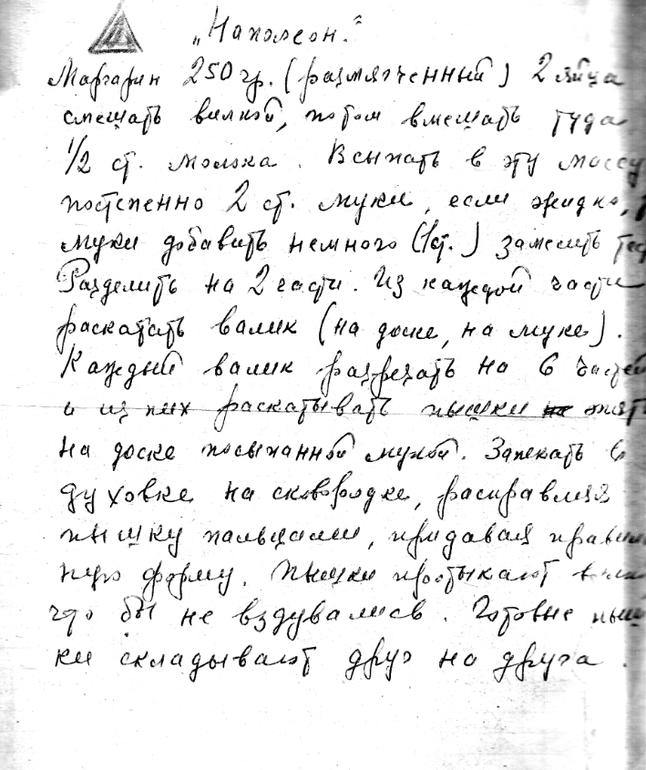 „Наполеон."
Маргарин 250 гр. (размягченный) 2 яйца
смешать вилкой, потом вмешать туда
1/2 ст. молока. Всыпать в эту массу
постепенно 2 ст. муки, если жидко,
муки добавить немного (1 ст.) замесить
Разделить на 2 части. Из каждой части
раскатать валик (на доске, на муке).
Каждый валик разрезать на 6 частей
и из них раскатывать пышки
на доске посыпанной мукой. Запекать в
духовке на сковородке, расправляя
пышку пальцами, придавая правиль
ную форму. Пышки протыкают
что бы не вздувались. Готовые пыш
ки складывают друг на друга.